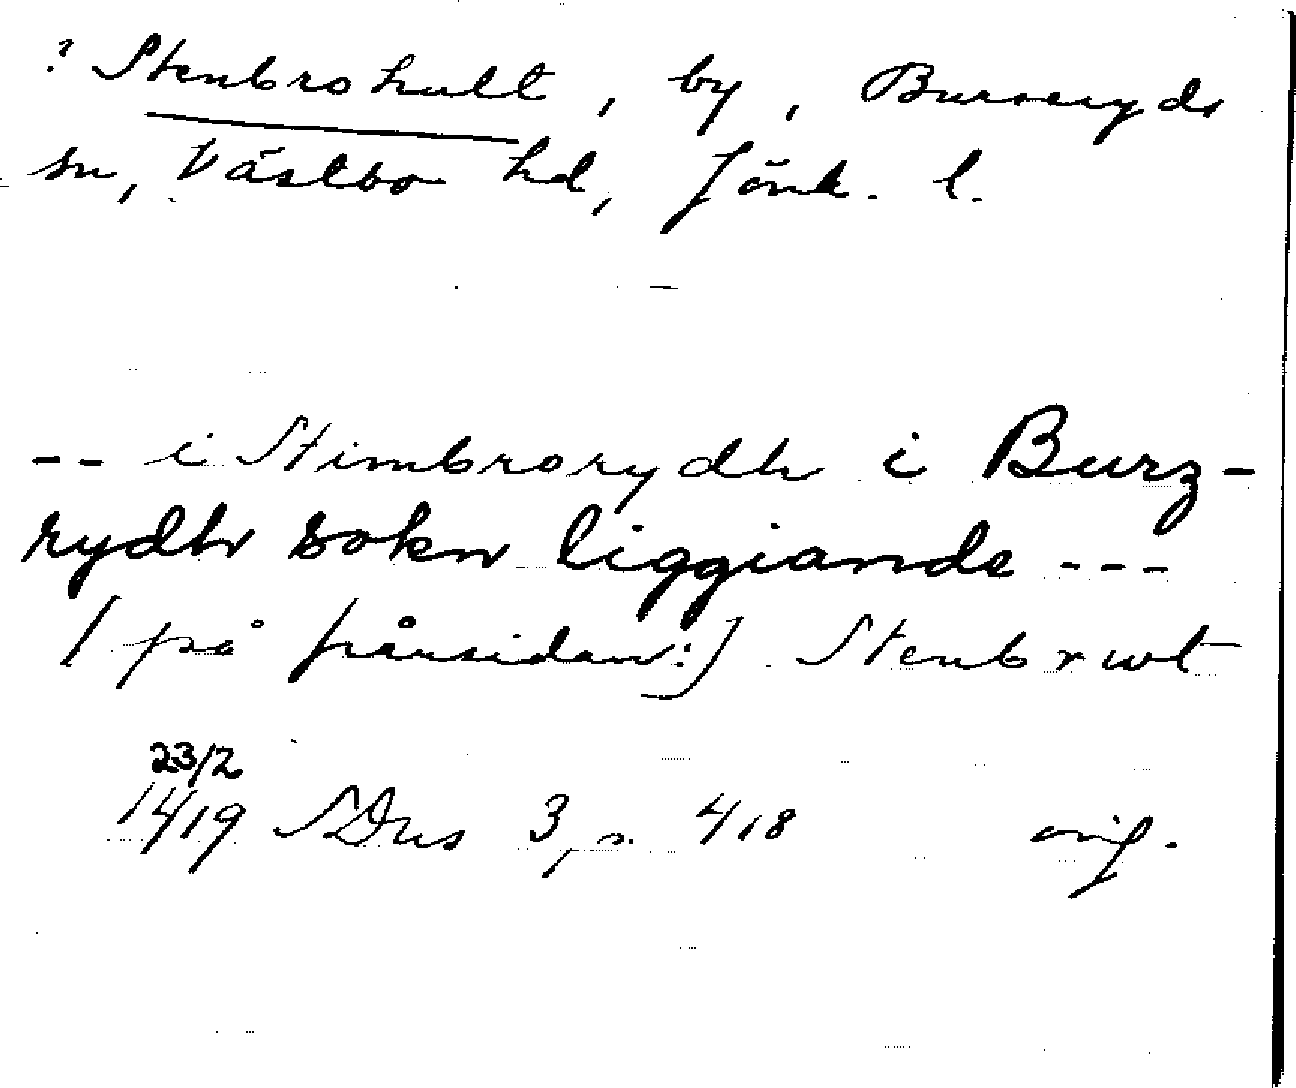 ? Stenbrohult, by, Burseryds
sn, Västbo hd, Jönk. l.
-- i Stimbrorydh i Burz-
rydh sokn liggiande ---
[på frånsidan:] Stenbrwt
23/2
1419 SDns 3, s. 418 orig.